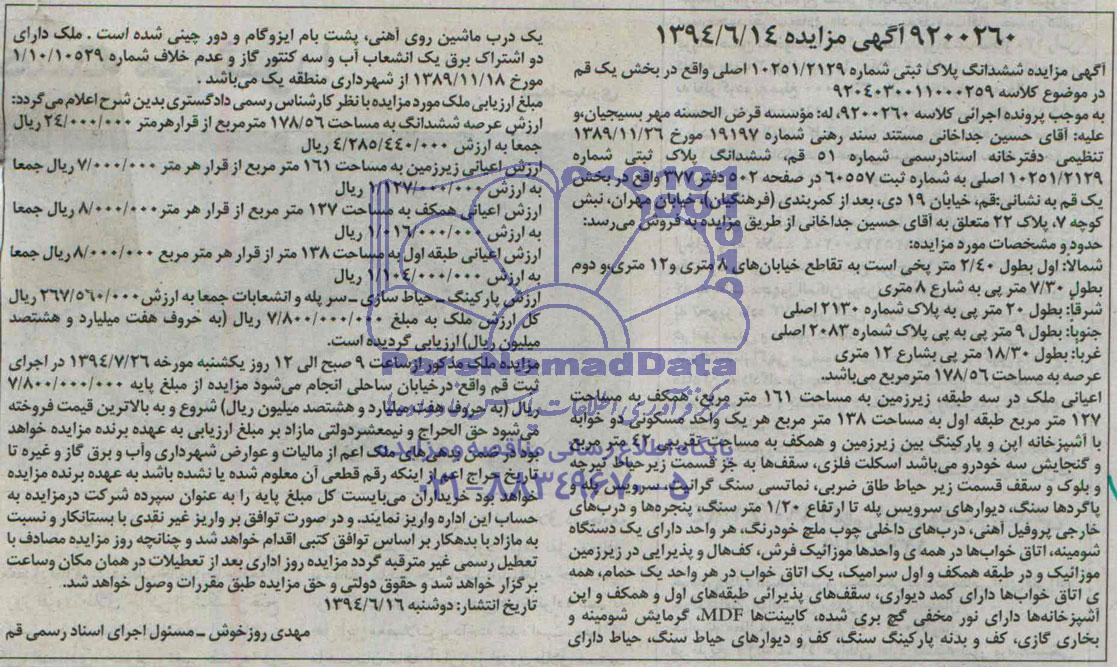 ۹۲۰۰۲۶۰ آگهی مزایده ۱۳۹۴/۶/۱۴
آگهی مزایده ششدانگ پلاک ثبتی شماره ۱۰۲۵۱/۲۱۲۹ اصلی واقع در بخش یک قم
در موضوع کلاسه ۹۲۰۴۰۳۰۰۱۱۰۰۰۲۵۹
به موجب پرونده اجرائی کلاسه ۹۲۰۰۲۶۰، له: مؤسسه قرض الحسنه مهر بسیجیان،و
علیه: آقای حسین جداخانی مستند سند رهنی شماره ۱۹۱۹۷ مورخ ۱۳۸۹/۱۱/۲۶
تنظیمی دفترخانه اسنادرسمی شماره ۵۱ قم، ششدانگ پلاک ثبتی شماره
۱۰۲۵۱/۲۱۲۹ اصلی به شماره ثبت ۶۰۵۵۷ در صفحه ۵۰۲ دفتر ۳۷۷ واقع در بخش
یک قم به نشانی:قم، خیابان ۱۹ دی، بعد از کمربندی (فرهنگیان)، خیابان مهران، نبش
کوچه ۷، پلاک ۲۲ متعلق به آقای حسین جداخانی از طریق مزایده به فروش می‌رسد:
حدود و مشخصات مورد مزایده:
شمالا: اول بطول ۲/۴۰ متر پخی است به تقاطع خیابان‌های ۸ متری و۱۲ متری،و دوم
بطول ۷/۳۰ متر پی به شارع ۸ متری
شرقاً: بطول ۲۰ متر پی به پلاک شماره ۲۱۳۰ اصلی
جنوبا: بطول ۹ متر پی به پی پلاک شماره ۲۰۸۳ اصلی
غربا: بطول ۱۸/۳۰ متر پی بشارع ۱۲ متری
عرصه به مساحت ۱۷۸/۵۶ مترمربع می‌باشد.
اعیانی ملک در سه طبقه، زیرزمین به مساحت ۱۶۱ متر مربع، همکف به مساحت
۱۲۷ متر مربع طبقه اول به مساحت ۱۳۸ متر مربع هر یک واحد مسکونی دو خوابه
با آشپزخانه اپن و پارکینگ بین زیرزمین و همکف به مساحت تقریبی ۴۲ متر مربع
و گنجایش سه خودرو می‌باشد اسکلت فلزی، سقف‌ها به جز قسمت زیرحیاط تیرچه
و بلوک و سقف قسمت زیر حیاط طاق ضربی، نماتسی سنگ گرانیت، سرویس پله و
پاگردها سنگ، دیوارهای سرویس پله تا ارتفاع ۱/۲۰ متر سنگ، پنجره‌ها و درب‌های
خارجی پروفیل آهنی، درب‌های داخلی چوب ملچ خودرنگ، هر واحد دارای یک دستگاه
شومینه، اتاق خواب‌ها در همه ی واحدها موزائیک فرش، کف‌هال و پذیرایی در زیرزمین
موزانیک و در طبقه همکف و اول سرامیک، یک اتاق خواب در هر واحد یک حمام، همه
ی اتاق خواب‌ها دارای کمد دیواری، سقف‌های پذیرانی طبقه‌های اول و همکف و اپن
آشپزخانه‌ها دارای نور مخفی گچ بری شده، کابینت‌ها MDF، گرمایش شومینه و
بخاری گازی، کف و بدنه پارکینگ سنگ، کف و دیوارهای حیاط سنگ، حیاط دارای
یک درب ماشین روی آهنی، پشت بام ایزوگام و دور چینی شده است . ملک دارای
دو اشتراک برق یک انشعاب آب و سه کنتور گاز و عدم خلاف شماره ۱/۱۰/۱۰۵۲۹
مورخ ۱۳۸۹/۱۱/۱۸ از شهرداری منطقه یک می‌باشد .
مبلغ ارزیابی ملک مورد مزایده با نظر کارشناس رسمی دادگستری بدین شرح اعلام می‌گردد:
ارزش عرصه ششدانگ به مساحت ۱۷۸/۵۶ مترمربع از قرار هرمتر ۲۴/۰۰۰/۰۰۰ ریال
جمعا به ارزش ۴/۲۸۵/۴۴۰/۰۰۰ ریال
ارزش اعیانی زیرزمین به مساحت ۱۶۱ متر مربع از قرار هر متر ۷/۰۰۰/۰۰۰ ریال جمعا
به ارزش ۱/۱۲۷/۰۰۰/۰۰۰ ریال
ارزش اعیانی همکف به مساحت ۱۲۷ متر مربع از قرار هر متر۸/۰۰۰/۰۰۰ ریال جمعا
به ارزش ۱/۰۱۶/۰۰۰/۰۰۰ ریال
ارزش اعیانی طبقه اول به مساحت ۱۳۸ متر از قرار هر متر مربع ۸/۰۰۰/۰۰۰ ریال جمعا
به ارزش ۱/۱۰۴/۰۰۰/۰۰۰ ریال
ارزش پارکینگ ـ حیاط سازی ـ سر پله و انشعابات جمعا به ارزش ۲۶۷/۵۶۰/۰۰۰ ریال
کل ارزش ملک به مبلغ ۷/۸۰۰/۰۰۰/۰۰۰ ریال (به حروف هفت میلیارد و هشتصد
میلیون ریال) ارزیابی گردیده است.
مزایده ملک مذکور از ساعت ۹ صبح الی ۱۲ روز یکشنبه مورخه ۱۳۹۴/۷/۲۶ در اجرای
ثبت قم واقع درخیابان ساحلی انجام می‌شود مزایده از مبلغ پایه ۷/۸۰۰/۰۰۰/۰۰۰
ریال (به حروف هفت میلیارد و هشتصد میلیون ریال) شروع و به بالاترین قیمت فروخته
می‌شود حق الحراج و نیمعشردولتی مازاد بر مبلغ ارزیابی به عهده برنده مزایده خواهد
بود در ضمن و هزینه‌های ملک اعم از مالیات و عوارض شهرداری وآب و برق گاز و غیره تا
تاریخ حراج اعم از اینکه رقم قطعی آن معلوم شده یا نشده باشد به عهده برنده مزایده
خواهد بود خریداران می‌بایست کل مبلغ پایه را به عنوان سپرده شرکت درمزایده به
حساب این اداره واریز نمایند. و در صورت توافق بر واریز غیر نقدی با بستانکار و نسبت
به مازاد با بدهکار بر اساس توافق کتبی اقدام خواهد شد و چنانچه روز مزایده مصادف با
تعطیل رسمی غیر مترقبه گردد مزایده روز اداری بعد از تعطیلات در همان مکان وساعت
برگزار خواهد شد و حقوق دولتی و حق مزایده طبق مقررات وصول خواهد شد.
تاریخ انتشار: دوشنبه ۱۳۹۴/۶/۱۶
مهدی روزخوش ـ مسئول اجرای اسناد رسمی قم
ParsNamadData
پایگاه اطلاع رسانی مناقصه و مزایده
۰۲۱-۸۸۳۴۹۶۷۰-۵